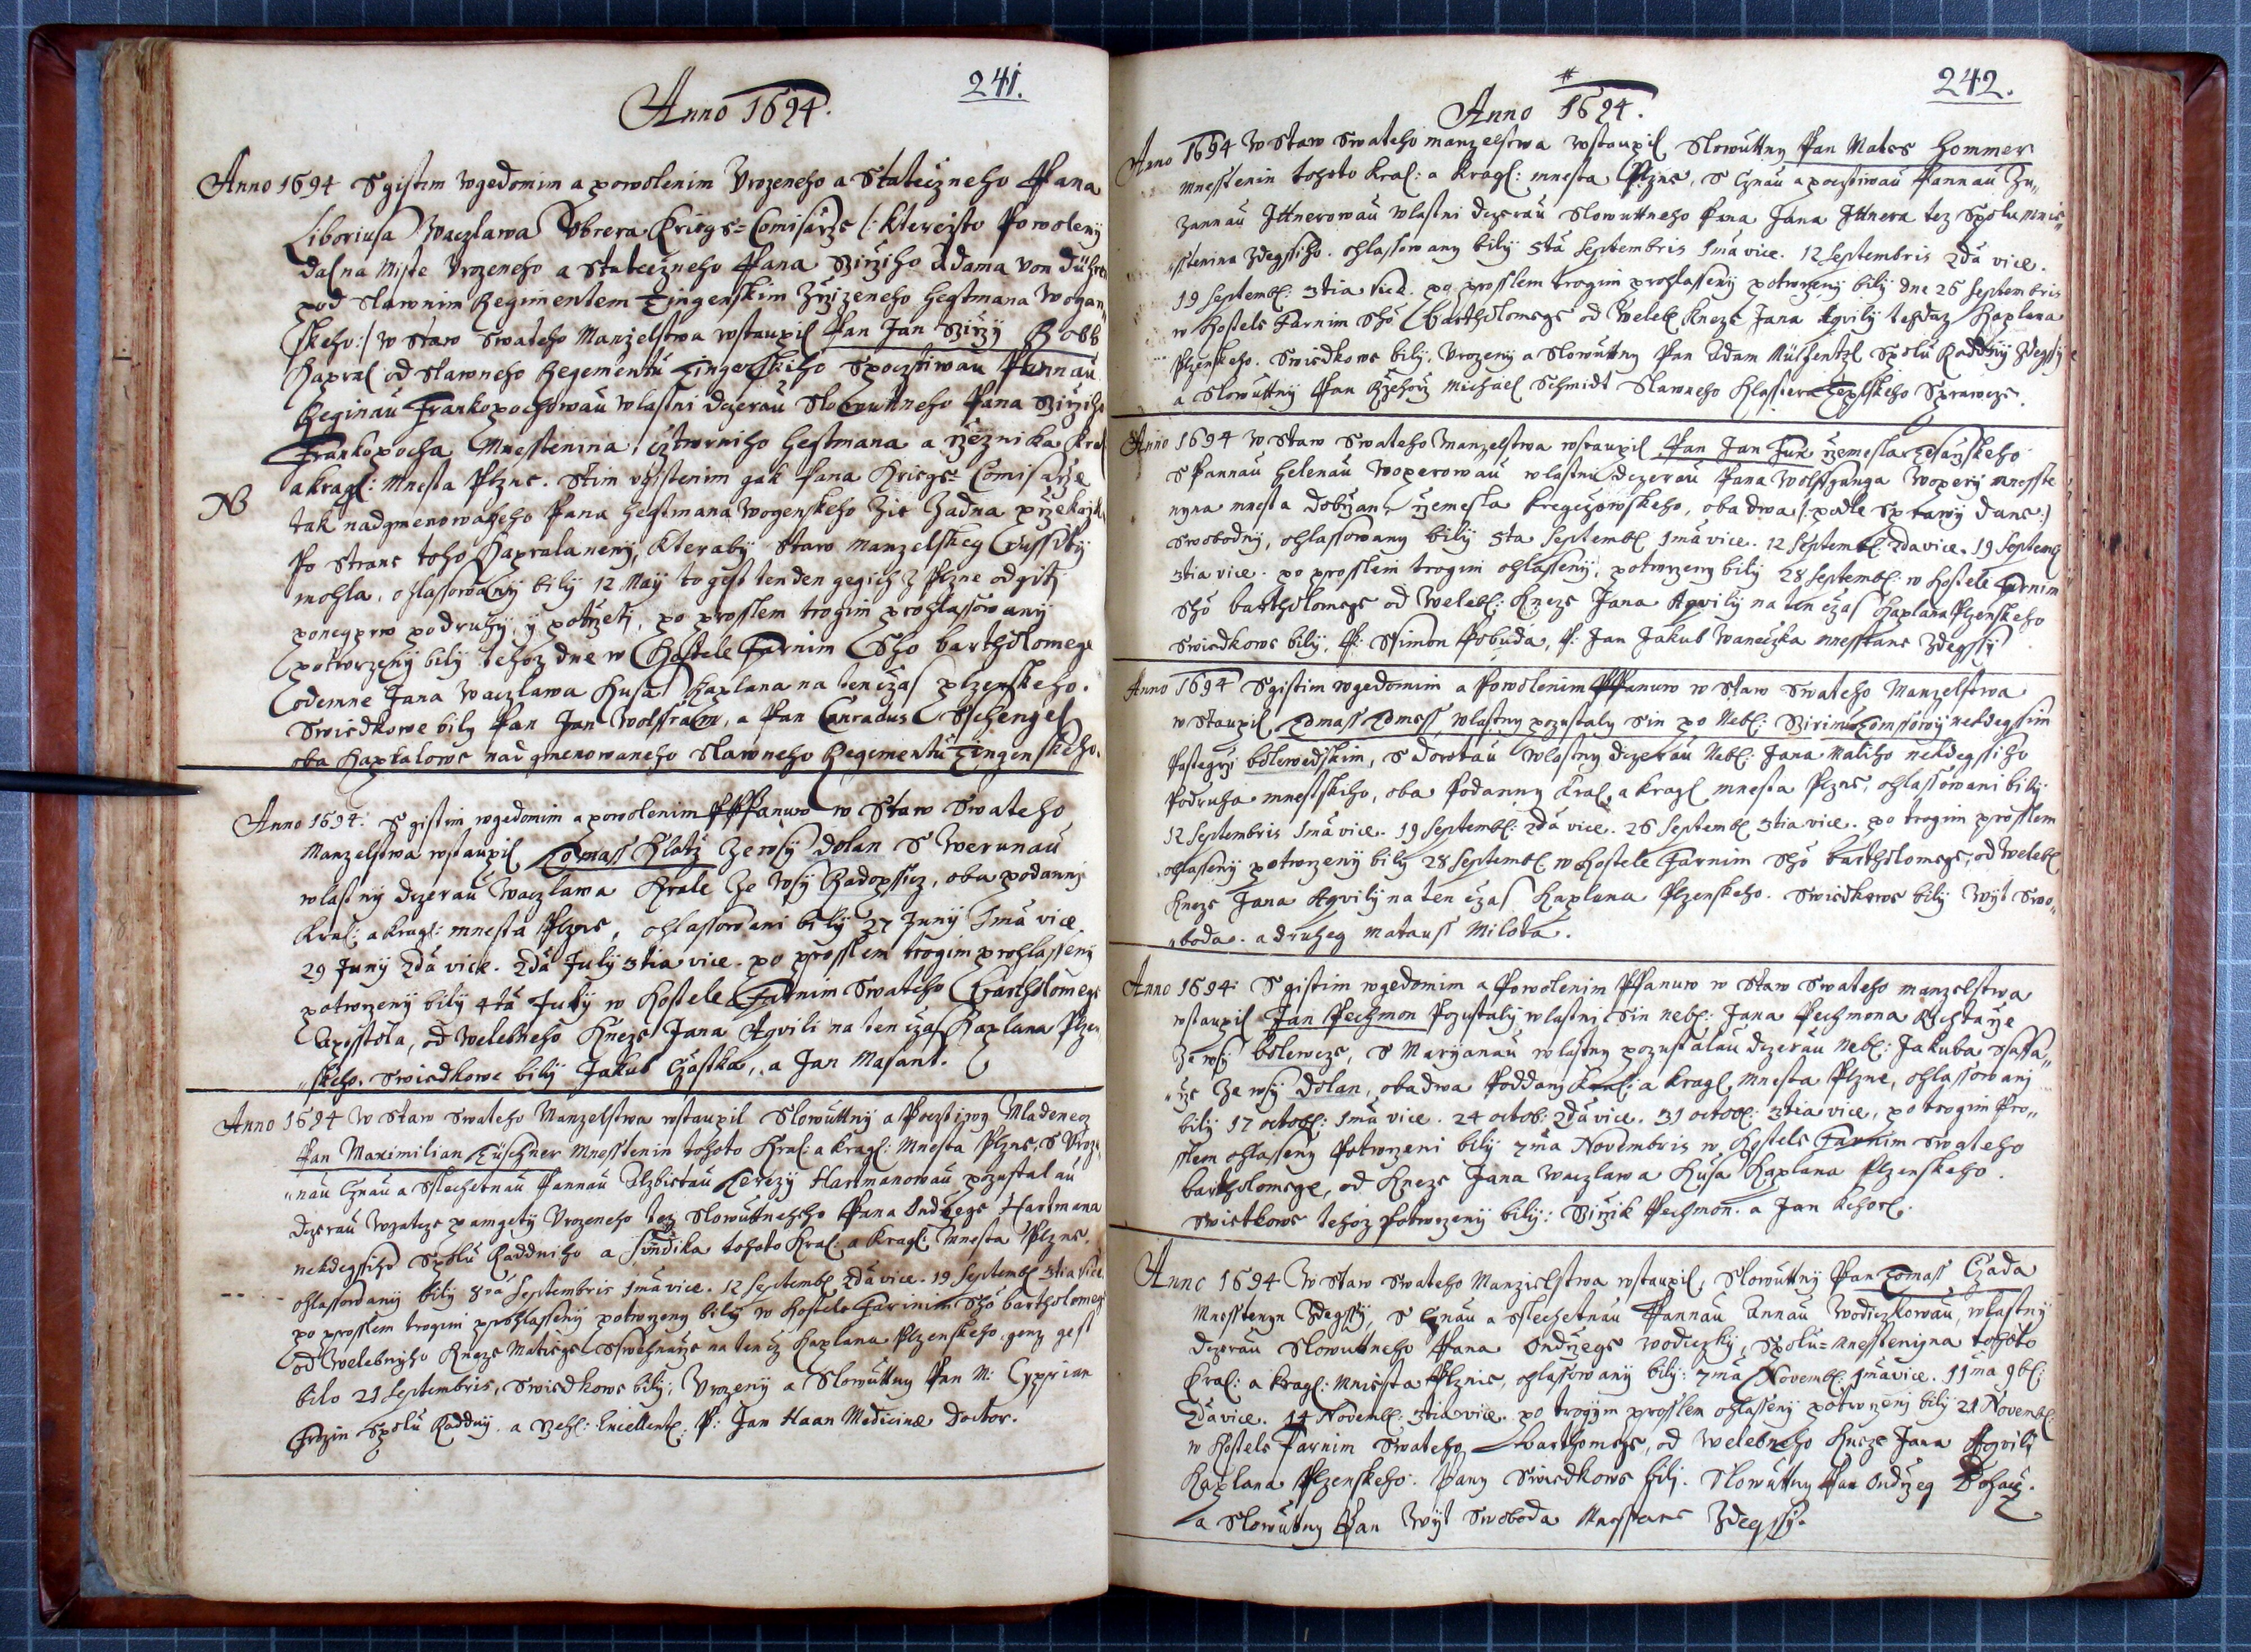 241.
Anno 1694.
Anno 1694 S gistim wgedomim a powolenim Urozeneho a Stateczneho Pana
Liboriusa Waczlawa Obrera Kriegs=Comisarze (: ktereižto Powoleny
dal na Miste Urozeneho a Stateczneho Pana Girziho Adama von
pod Slawnim Regimentem Zřizeneho Hegtmana Wogen„
skeho :) W Staw Swateho Manzelstwa wstaupil Pan Jan Girzy Bobb
Kapral od Slawneho Regementu S poctiwau Pannau
Reginau Frankopochowau wlastni dczerau Slowuttneho Pana Girziho
Frankopocha Mnesstenina, cztwrniho Hegtmana a rzeznika Kral
a kragl: Mnesta Plzne. S tim ugisstenim gak Pana Kriegs=Comisarze
NB
tak nadgmenowaneho Pana Hegtmana Wogenskeho Zie Zadna przekazka
Po strane toho Kaprala neny, kteraby Staw Manzelskeg Russiti
mohla. ohlassowany bily 12 Maÿ to gest ten den gegich z Plzne odgiti
ponegprw po druhy, y potrzeti, po prosslem trogim prohlassowany
potwrzeny bily tehoz dne w Kostele Farnim Sho Bartholomege
odemne Jana Waczlawa Husa Kaplana na ten czas plzenskeho.
Swiedkowe bily Pan Jan Wolfram, a Pan Conradus Schengel
oba Kapralowe nadgmenowaneho Slawneho Regementu
Anno 1694. S gistim wgedomim a powolenim PPPanuw w Staw Swateho
Manzelstwa wstaupil Tomass Klatz ze wsÿ Dolan S Werunau
wlastnÿ dczerau Waczlawa Krale ze Wsÿ Radopssicz, oba podanni
Kral: a Kragl: mnesta Plzne, ohlassowani bilÿ 27 Junÿ 1ma vice
29 Junÿ 2da vice. 2da Julÿ 3tia vice. po prosslem trogim prohlasseny
potwrzenÿ bilÿ 4ta Julÿ w Kostele Farnim Swateho Bartholomege
Aposstola, od Welebneho Kneze Jana Aqvili na ten czas Kaplana Plzen„
„skeho. Swiedkowe bilÿ Jakub Czastka, a Jan Masant.
Anno 1694 W Staw Swateho Manzelstwa wstaupil Slowuttnÿ a Poctiwy Mladenecz
Pan Maximilian Mnesstenin tohoto Kral: a Kragl: Mnesta Plzne, S Uroze„
„nau Cznau a Sslechetnau Pannau Alzbietau Terezÿ Hartmanowau pozustalau
dczerau wzatcze pamgetÿ Urozeneho tez Slowuttneho Pana Ondrzege Hartmana
nekdegssiho Spolu Raddniho a Sÿndika tohoto Kral: a Kragl: Mnesta Plzne.
ohlassowanÿ bilÿ Septembris 1ma vice. 12 Septemb: 2da vice. 19 Septemb: 3tia vice.
po prosslem trogim prohlassenÿ potwrzeny bilÿ w Kostele Farinim Sho Bartholomege
od Welebnÿho Kneze Matiege na ten cz Kaplana Plzenskeho. genz gest
bilo 21 Septembris, Swiedkowe bilÿ, Urozenÿ a Slowuttny Pan M: Cyprian
Spolu Raddnÿ. a Excellent: P: Jan Haan Medicinæ Doctor.
242.
Anno 1694.
Anno 1694 W Staw Swateho manzelstwa wstaupil Slowuttny Pan Mates Hommer
Mnesstenin tohoto Kral: a Kragl: mnesta Plzne, S Cznau a poctiwau Pannau Zu„
zannau Ittnerowau wlastni dczerau Slowuttneho Pana Jana Ittnera tez Spolu mnie„
„sstenina Zdegssiho. ohlassowany bilÿ 5ta Septembris 1ma vice. 12 Septembris 2da vice.
19 Septemb: 3tia vice. po prosslem trogim prohlassenÿ potwrzenÿ bilÿ dne 26 Septembris
w Kostele Farnim Sho Bartholomege od Weleb: Kneze Jana Aqvilÿ tehdaz Kaplana
Plzenskeho. Swiedkowe bilÿ, Urozenÿ a Slowuttny Pan Adam Spolu Raddnÿ Zdegssÿ
a Slowuttnÿ Pan Rzehorz Michael Schmidt Slawneho Klasstera Teplskeho Sprawcze.
Anno 1694 W Staw Swateho Manzelstwa wstaupil Pan Jan Fux rzemesla tesarzskeho
S Pannau Helenau Woperowau wlastni dczerau Pana Wolffganga Woperÿ mnesste
nyna mnesta Dobrzan, rzemesla kregczowskeho, oba dwa (: podle Sprawÿ dane :)
Swobodnÿ, ohlassowany bilÿ 5ta Septemb: 1ma vice. 12 Septemb: 2da vice. 19 Septemb:
3tia vice. po prosslem trogim ohlassenÿ, potwrzeny bilÿ 28 Septemb: w Kostele Farnim
Sho Bartholomege od Weleb: Kneze Jana Aqvilÿ na ten czas Kaplana Plzenskeho
Swiedkowe bilÿ, P: Ssimon Pobuda, P: Jan Jakub Waneczka mnesstane Zdegssÿ
Anno 1694 S gistim wgedomim a Powolenim PPPanuw w Staw Swateho Manzelstwa
wstaupil Tomass wlastny pozustaly Sin po Neb: nekdegssim
Pastegrzi bolewedskim, S Dorotau wlastny dczerau Neb: Jana Maliho nekdegssiho
Podruha mnestskiho, oba Podanny Kral: a Kragl mnesta Plzne, ohlassowani bilÿ
12 Septembris 1ma vice. 19 Septemb: 2da vice. 26 Septemb 3tia vice. po trogim prosslem
ohlassenÿ potwrzenÿ bilÿ 28 Septemb: w Kostele Farnim Sho Bartholomege, od Weleb:
Kneze Jana Aqvilÿ na ten czas Kaplana Plzenskeho. Swiedkowe bilÿ Wÿt Swo„
„boda. a druheg Matauss Milota.
Anno 1694. S gistim wgedomim a Powolenim PPanuw w Staw Swateho manzelstwa
wstaupil Jan Pechmon Pozustalÿ wlastni Sin neb: Jana Pechmona Rychtarze
Ze wsÿ bolewcze, S Marÿanau wlastny pozustalau dczerau Neb: Jakuba Ssaffa„
„rze Ze wsÿ Dolan, obadwa Poddany Kral: a Kragl. Mnesta Plzne, ohlassowany
bilÿ 17 octob: 1ma vice. 24 octob: 2da vice. 31 octob: 3tia vice, po trogim Pro„
sslem ohlasseny Potwrzeni bilÿ 7ma Novembris w Kostele Farnim Swateho
Bartholomege, od Kneze Jana Waczlawa Husa Kaplana Plzenskeho.
Swietkowe tehoz Potwrzenÿ bilÿ: Girzik Pechmon. a Jan Kchorl.
Anno 1694 W Staw Swateho Manzielstwa wstaupil, Slowuttnÿ Pan Tomass Czada
Mnesstenyn Zdegssÿ, S Cznau a Sslechetnau Pannau Annau Wodiczkowau, wlastnÿ
dczerau Slowuttneho Pana Ondrzege Wodiczkÿ, Spolu=mnesstenyna tohoto
Kral: a Kragl: Mniesta Plznie, ohlassowanÿ bilÿ: 7ma Novemb: 1ma vice. 11ma 9b:
2da vice. 14 Novemb: 3tia vice. po trogim prosslem ohlassenÿ potwrzenÿ bilÿ 21 Novemb:
w Kostele Farnim Swateho Barthomege, od Welebneho Kneze Jana Aqvili
Kaplana Plzenskeho. Pany Swiedkowe bilj. Slowuttny Pan Ondrzeg
a Slowuttny Pan Wÿt Swoboda Mnesstane Zdegssÿ.